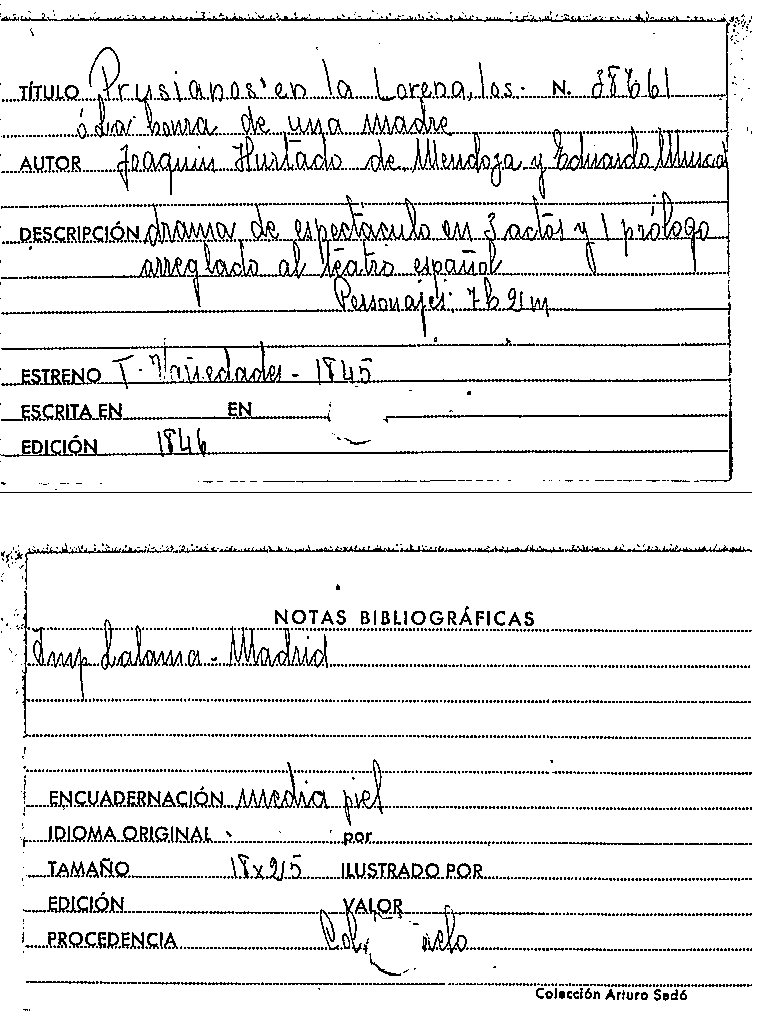 TÍTULO Prusianos en la Lorena, los. N. 38661
ó La honra de una madre
AUTOR Joaquin Hurtado de Mendoza y Eduardo
DESCRIPCIÓN drama de espectáculo en 3 actos y 1 prólogo
arreglado al teatro español
Personajes: 7h 2m
ESTRENO T. Variedades - 1845
ESCRITA EN EN
EDICIÓN 1846
NOTAS BIBLIOGRÁFICAS
Imp Lalama - Madrid
ENCUADERNACIÓN media piel
IDIOMA ORIGINAL por
TAMAÑO ILUSTRADO POR
EDICIÓN VALOR
PROCEDENCIA
Colección Arturo Sedó